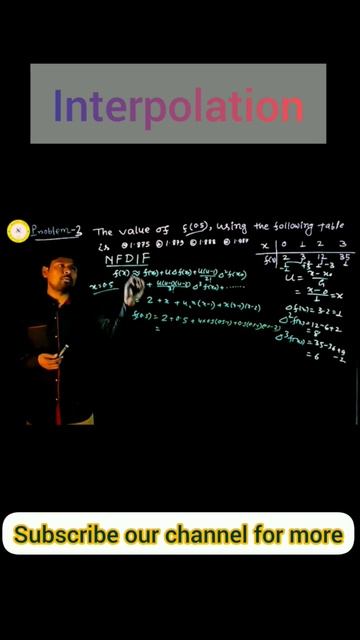 Interpolation
Problem-3 The value of f(0.5), using the following table
is ⓐ 1.875 ⓑ 1.879 ⓒ 1.888 ⓓ 1.487
x 0 1 2 3
f(x) 2 3 12 35
NFDIF
f(x) ≈ f(x₀) + uΔf(x₀) + u(u-1)/2! Δ²f(x₀)
+ u(u-1)(u-2)/3! Δ³f(x₀) + ......
x=0.5
u = x-x₀/h
= x-0/1 = x
2 + x + 4x(x-1) + x(x-1)(x-2)
Δf(x₀) = 3-2 = 1
f(0.5) = 2 + 0.5 +
=
Δ²f(x₀) = 12-6+2
= 8
Δ³f(x₀) = 35-36+9
-2
= 6
Subscribe our channel for more